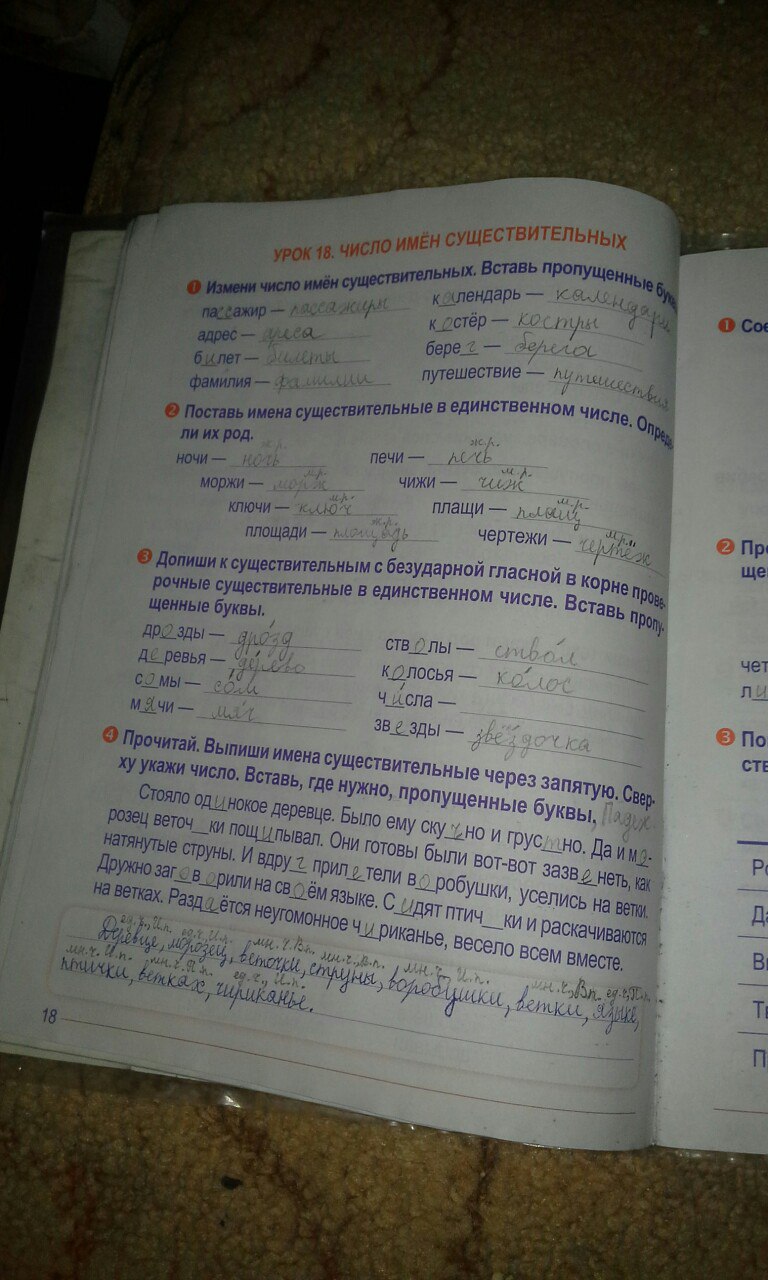 УРОК 18. ЧИСЛО ИМЁН СУЩЕСТВИТЕЛЬНЫХ
1 Измени число имён существительных. Вставь пропущенные бук
пассажир — пассажиры календарь — календари
адрес — адреса костёр — костры
билет — билеты берег — берега
фамилия — фамилии путешествие — путешествия
2 Поставь имена существительные в единственном числе. Опреде-
ли их род.
ж.р. ж.р.
ночи — ночь печи — печь
м.р. м.р.
моржи — морж чижи — чиж
м.р. м.р.
ключи — ключ плащи — плащ
ж.р. м.р.
площади — площадь чертежи — чертёж
3 Допиши к существительным с безударной гласной в корне прове-
рочные существительные в единственном числе. Вставь пропу-
щенные буквы.
дрозды — дро́зд стволы — ство́л
деревья — де́рево колосья — ко́лос
сомы — со́м числа —
мячи — мя́ч звезды — звёздочка
4 Прочитай. Выпиши имена существительные через запятую. Свер-
ху укажи число. Вставь, где нужно, пропущенные буквы, Падеж
Стояло одинокое деревце. Было ему скучно и грустно. Да и мо-
розец веточ_ки пощипывал. Они готовы были вот-вот зазвенеть, как
натянутые струны. И вдруг прилетели воробушки, уселись на ветки.
Дружно заговорили на своём языке. Сидят птич_ки и раскачиваются
на ветках. Раздаётся неугомонное чириканье, весело всем вместе.
ед.ч., И.п. ед.ч., И.п. мн.ч. В.п. мн.ч., В.п. мн.ч., И.п. мн.ч., В.п. ед.ч., П.п.
Деревце, морозец, веточки, струны, воробушки, ветки, языке,
мн.ч. И.п. мн.ч. П.п. ед.ч., И.п.
птички, ветках, чириканье.
18
1 Сое
2 Пр
ще
чет
ли
3 По
ств
Р
Д
В
Т
П